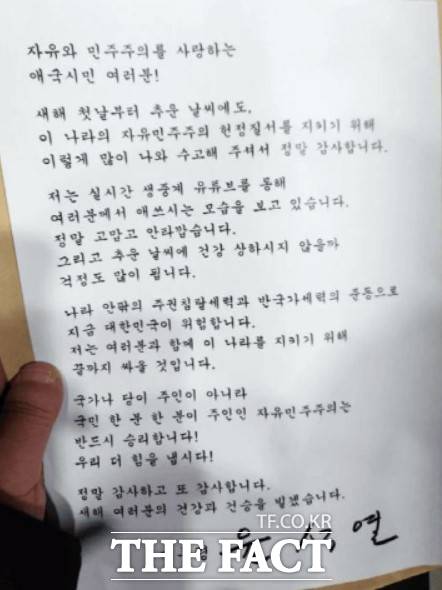 자유와 민주주의를 사랑하는
애국시민 여러분!
새해 첫날부터 추운 날씨에도,
이 나라의 자유민주주의 헌정질서를 지키기 위해
이렇게 많이 나와 수고해 주셔서 정말 감사합니다.
저는 실시간 생중계 유튜브를 통해
여러분께서 애쓰시는 모습을 보고 있습니다.
정말 고맙고 안타깝습니다.
그리고 추운 날씨에 건강 상하시지 않을까
걱정도 많이 됩니다.
나라 안팎의 주권침탈세력과 반국가세력의 준동으로
지금 대한민국이 위험합니다.
저는 여러분과 함께 이 나라를 지키기 위해
끝까지 싸울 것입니다.
국가나 당이 주인이 아니라
국민 한 분 한 분이 주인인 자유민주주의는
반드시 승리합니다!
우리 더 힘을 냅시다!
정말 감사하고 또 감사합니다.
새해 여러분의 건강과 건승을 빌겠습니다.
윤석열
TF.CO.KR
THE FACT